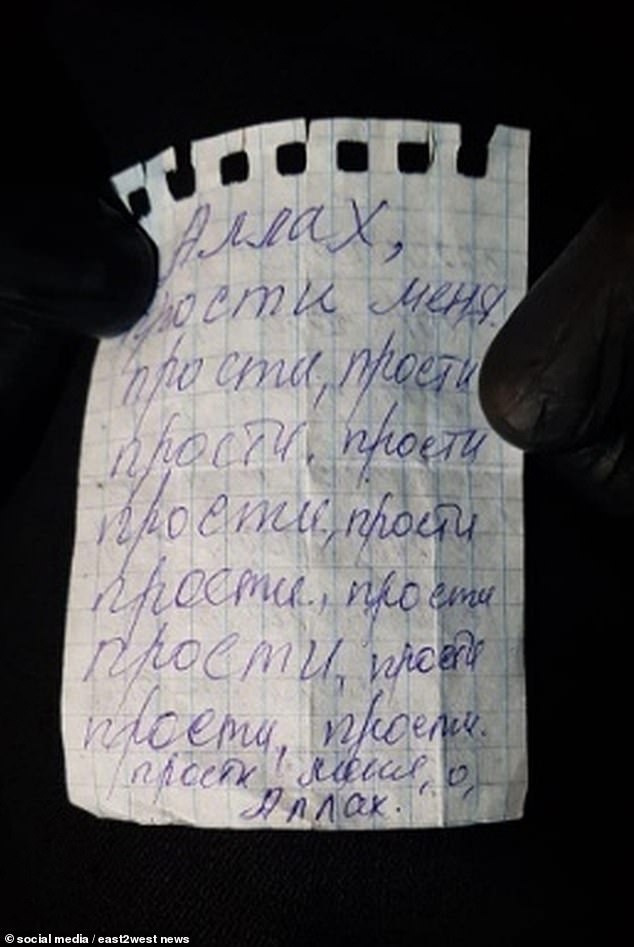 Аллах,
прости меня.
прости, прости
прости, прости
прости, прости
прости, прости
прости, прости
прости, прости.
прости меня, о,
Аллах.
© social media / east2west news